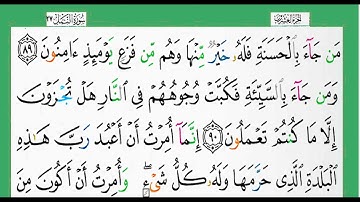 الجزء العشرون سورة النمل ٢٧
مَن جَآءَ بِالْحَسَنَةِ فَلَهُۥ خَيْرٌ مِّنْهَا وَهُم مِّن فَزَعٍ يَوْمَئِذٍ ءَامِنُونَ ٨٩
وَمَن جَآءَ بِالسَّيِّئَةِ فَكُبَّتْ وُجُوهُهُمْ فِى النَّارِ هَلْ تُجْزَوْنَ
إِلَّا مَا كُنتُمْ تَعْمَلُونَ ٩٠ إِنَّمَآ أُمِرْتُ أَنْ أَعْبُدَ رَبَّ هَٰذِهِ
الْبَلْدَةِ الَّذِى حَرَّمَهَا وَلَهُۥ كُلُّ شَىْءٍ ۖ وَأُمِرْتُ أَنْ أَكُونَ مِنَ